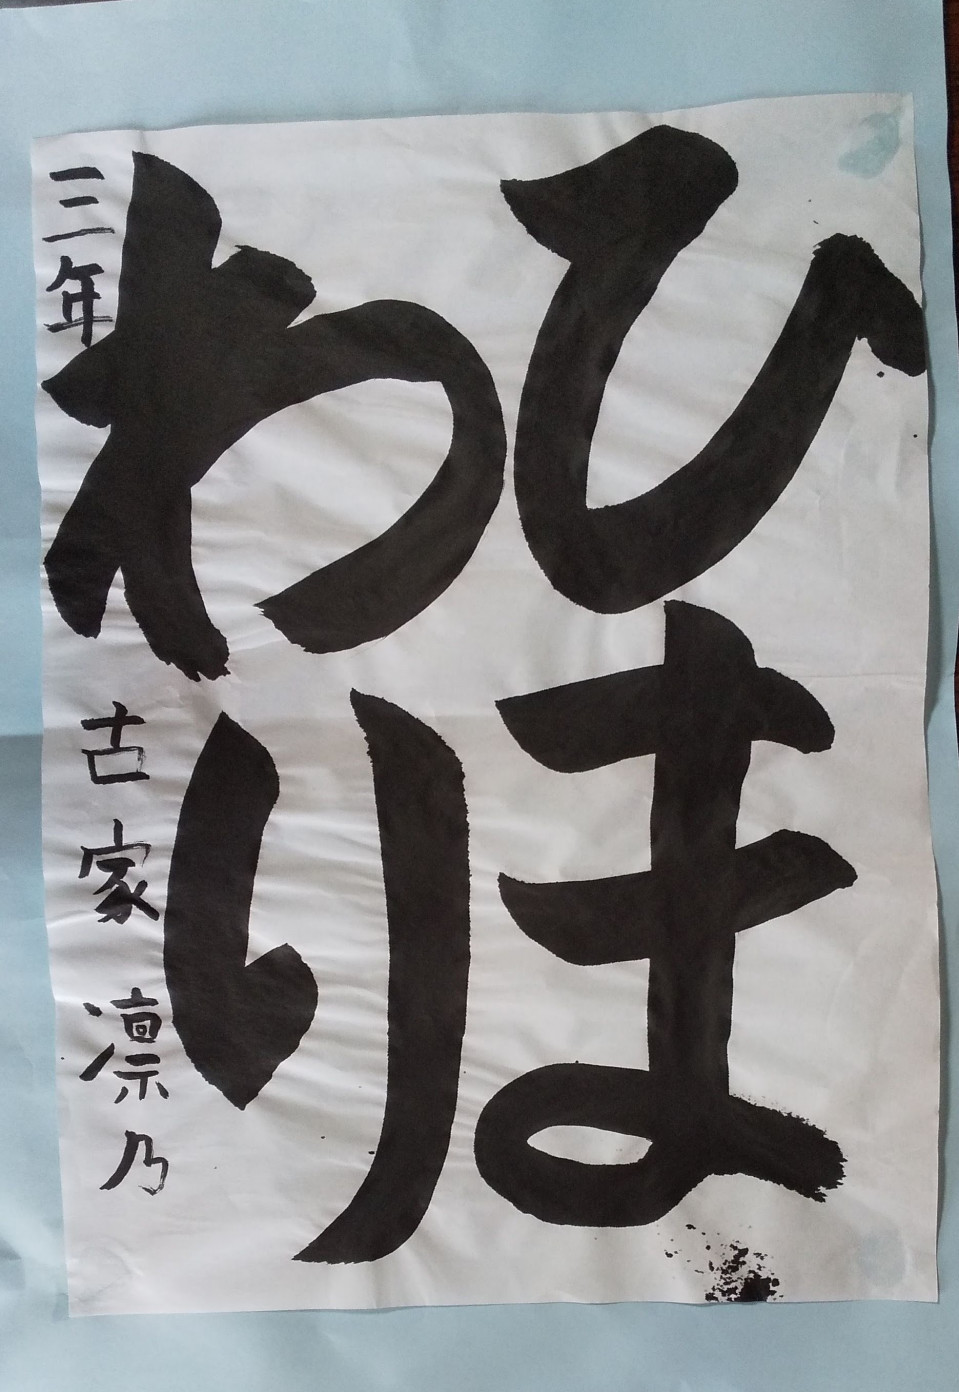 ひま
わり
三年 古家凛乃